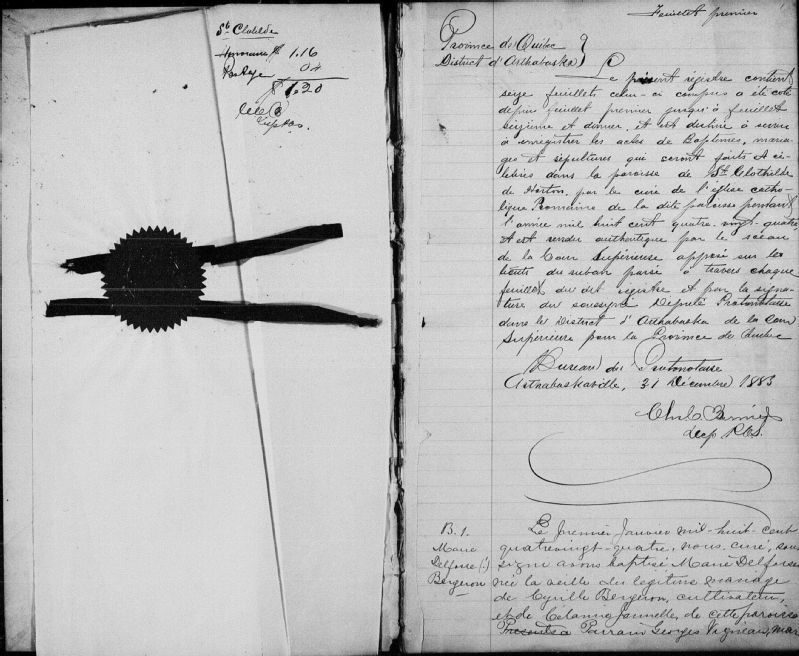 Ste Clotilde
Honoraires $ 1.16
Postage 04
$ 1.20
Dep P.C.S.
Feuillet premier
Province de Québec
District d'Arthabaska
Le présent régistre contient
seize feuillets celui-ci compris a été coté
depuis feuillet premier jusqu'à feuillet
seizième et dernier, et est destiné à servir
à enregistrer les actes de Baptêmes, maria-
ges et sépultures qui seront faits et cé-
lébrés dans la paroisse de Ste Clothilde
de Horton, par le curé de l'église catho-
lique Romaine de la dite paroisse pendant
l'année mil huit cent quatre-vingt-quatre
et est rendu authentique par le sceau
de la Cour Supérieure apposé sur les
bouts du ruban passé à travers chaque
feuillet du dit régistre et par la signa-
ture du soussigné Député Protonotaire
dans le District d'Arthabaska de la Cour
Supérieure pour la Province de Québec
Bureau du Protonotaire
Arthabaskaville, 31 Décembre 1883
Chs C Barnier
Dep P.C.S.
B. 1.
Marie
Delforse (.)
Bergeron
Le premier Janvier mil-huit-cent
quatrevingt-quatre, nous, curé, sous
signé avons baptisé Marie Delforse
née la veille du légitime mariage
de Cyrille Bergeron, cultivateur,
et de Célanie Jannelle, de cette paroisse
Présents a Parrain Georges Vigneau, mar